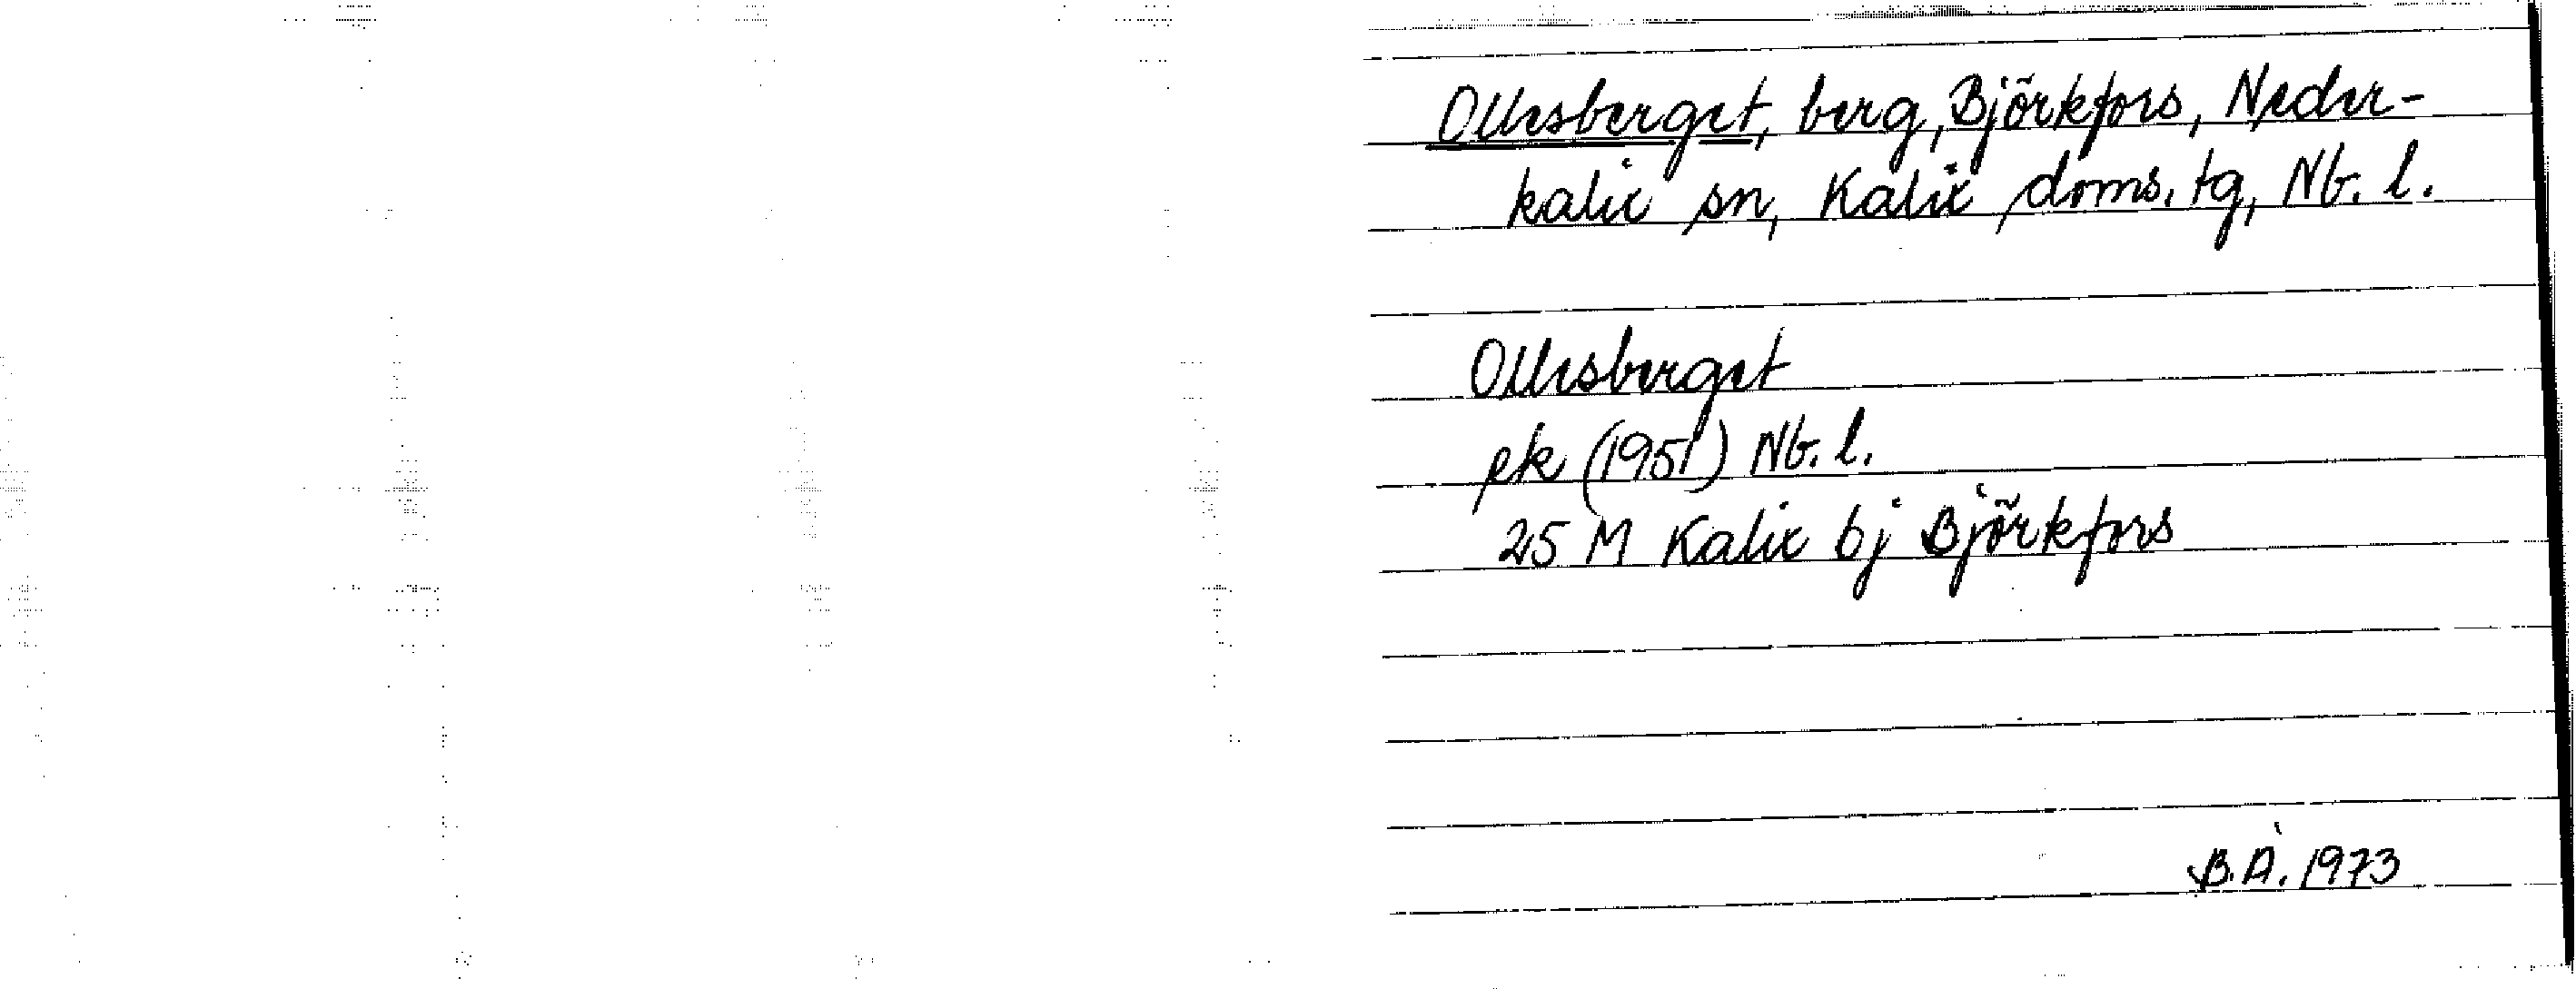 Ollesberget, berg, Björkfors, Neder-
kalix sn, Kalix doms. tg, Nb. l.
Ollesberget
ek (1951) Nb. l.
25 M Kalix bj Björkfors
B.Å. 1973